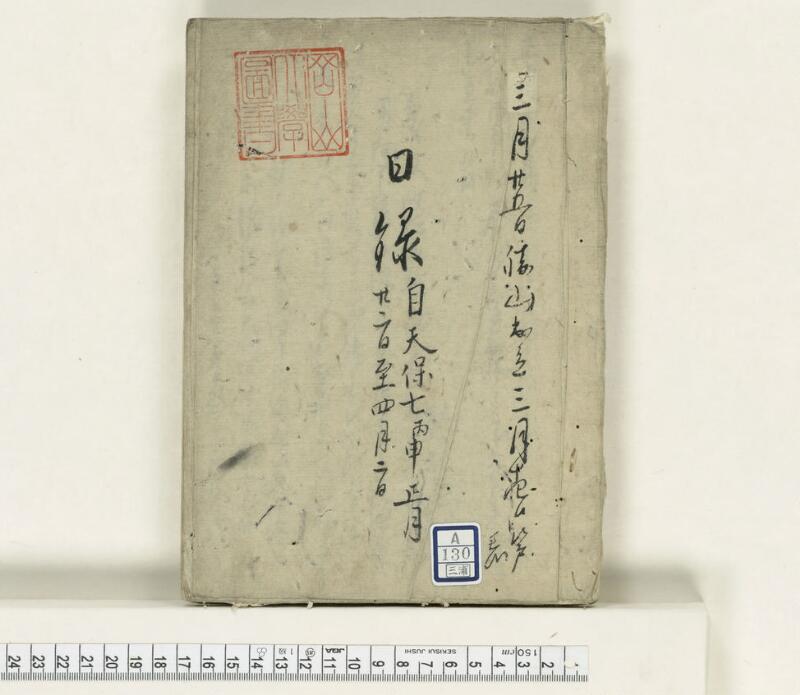 三月廿五日勝山出立三月
目録
自天保七丙申正月
廿二日至四月二日
岡山
大學
圖書
A
130
三浦
24 23 22 21 20 19 18 17 16 15 14 13 12 11 10 9 8 7 6 5 4 3 2 1
JISA
SEKISUI JUSHI
150cm